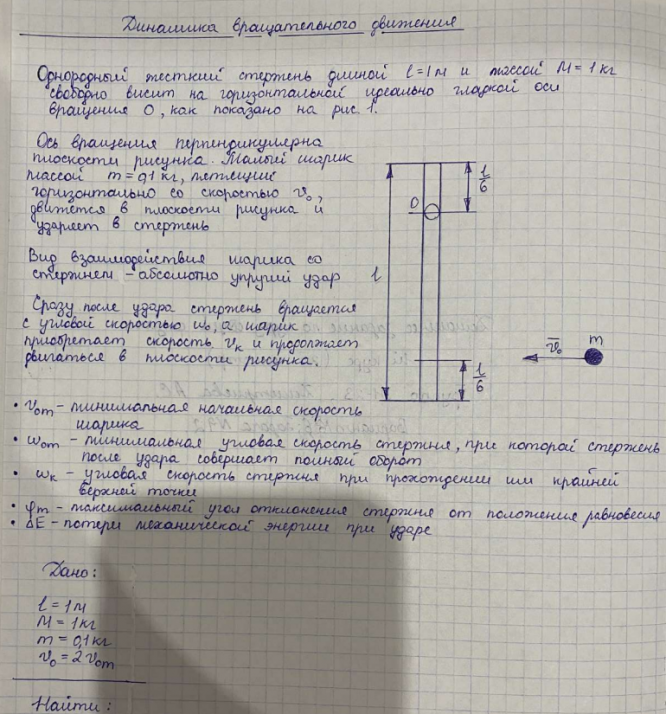 Динамика вращательного движения
Однородный жесткий стержень длиной l=1м и массой M=1кг
свободно висит на горизонтальной идеально гладкой оси
вращения O, как показано на рис. 1.
Ось вращения перпендикулярна
плоскости рисунка. Малый шарик
массой m=0,1кг, летящий
горизонтально со скоростью v₀,
движется в плоскости рисунка и
ударяет в стержень
Вид взаимодействия шарика со
стержнем – абсолютно упругий удар
Сразу после удара стержень вращается
с угловой скоростью ω₀, а шарик
приобретает скорость vк и продолжает
двигаться в плоскости рисунка.
l/6
O
l
l/6
v̅₀
m
• v₀m – минимальная начальная скорость
шарика
• ω₀m – минимальная угловая скорость стержня, при которой стержень
после удара совершает полный оборот
• ωк – угловая скорость стержня при прохождении им крайней
верхней точки
• φm – максимальный угол отклонения стержня от положения равновесия
• ΔE – потери механической энергии при ударе
Дано:
l=1м
M=1кг
m=0,1кг
v₀=2v₀m
Найти: